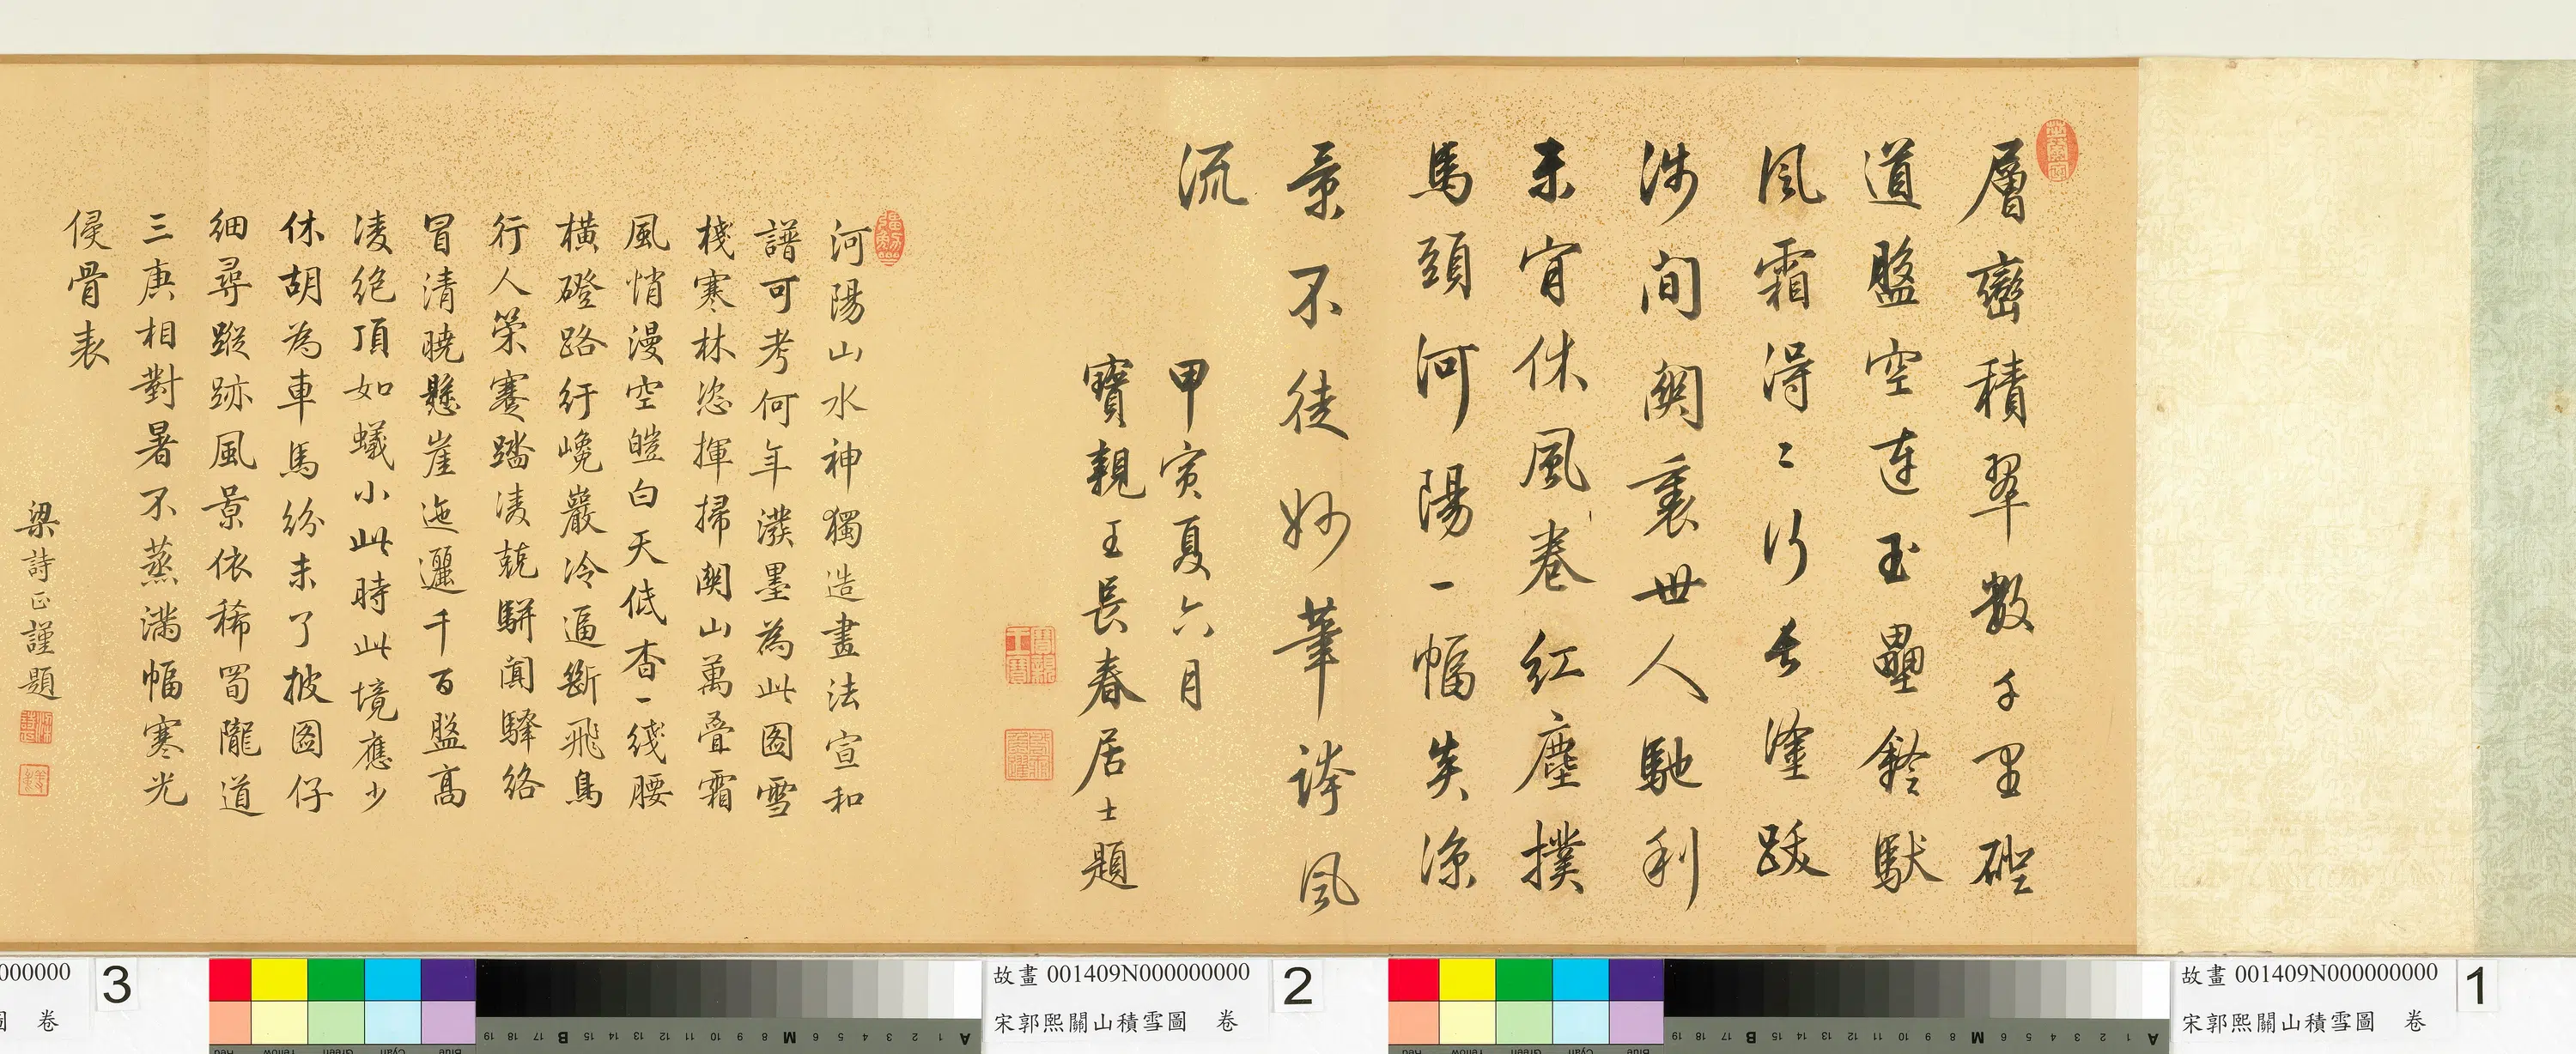 層巒積翠數千里磴
道盤空連玉壘鈴馱
風霜得得行長途跋
涉間關裏世人馳利
未肯休風卷紅塵撲
馬頭河陽一幅矣涼
景不徒妙筆誇風
流
甲寅夏六月
寶親王長春居士題
河陽山水神獨造畫法宣和
譜可考何年潑墨為此圖雪
棧寒林恣揮掃關山萬疊霜
風悄漫空皚白天低杳一綫腰
橫磴路紆巉巖冷逼斷飛鳥
行人策蹇踏凌兢駢闐驛絡
冒清曉懸崖迤邐千百盤高
凌絕頂如蟻小此時此境應少
休胡為車馬紛未了披圖仔
細尋蹤跡風景依稀蜀隴道
三庚相對暑不蒸滿幅寒光
侵骨表
梁詩正謹題
故畫 001409N000000000
宋郭熙關山積雪圖 卷
1
故畫 001409N000000000
宋郭熙關山積雪圖 卷
2
000000
圖 卷
3